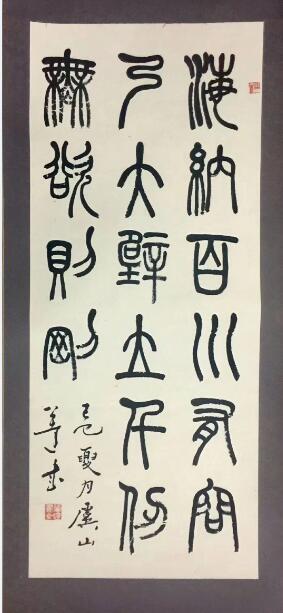 海納百川有容
乃大壁立千仞
無欲則剛
己巳夏月虞山